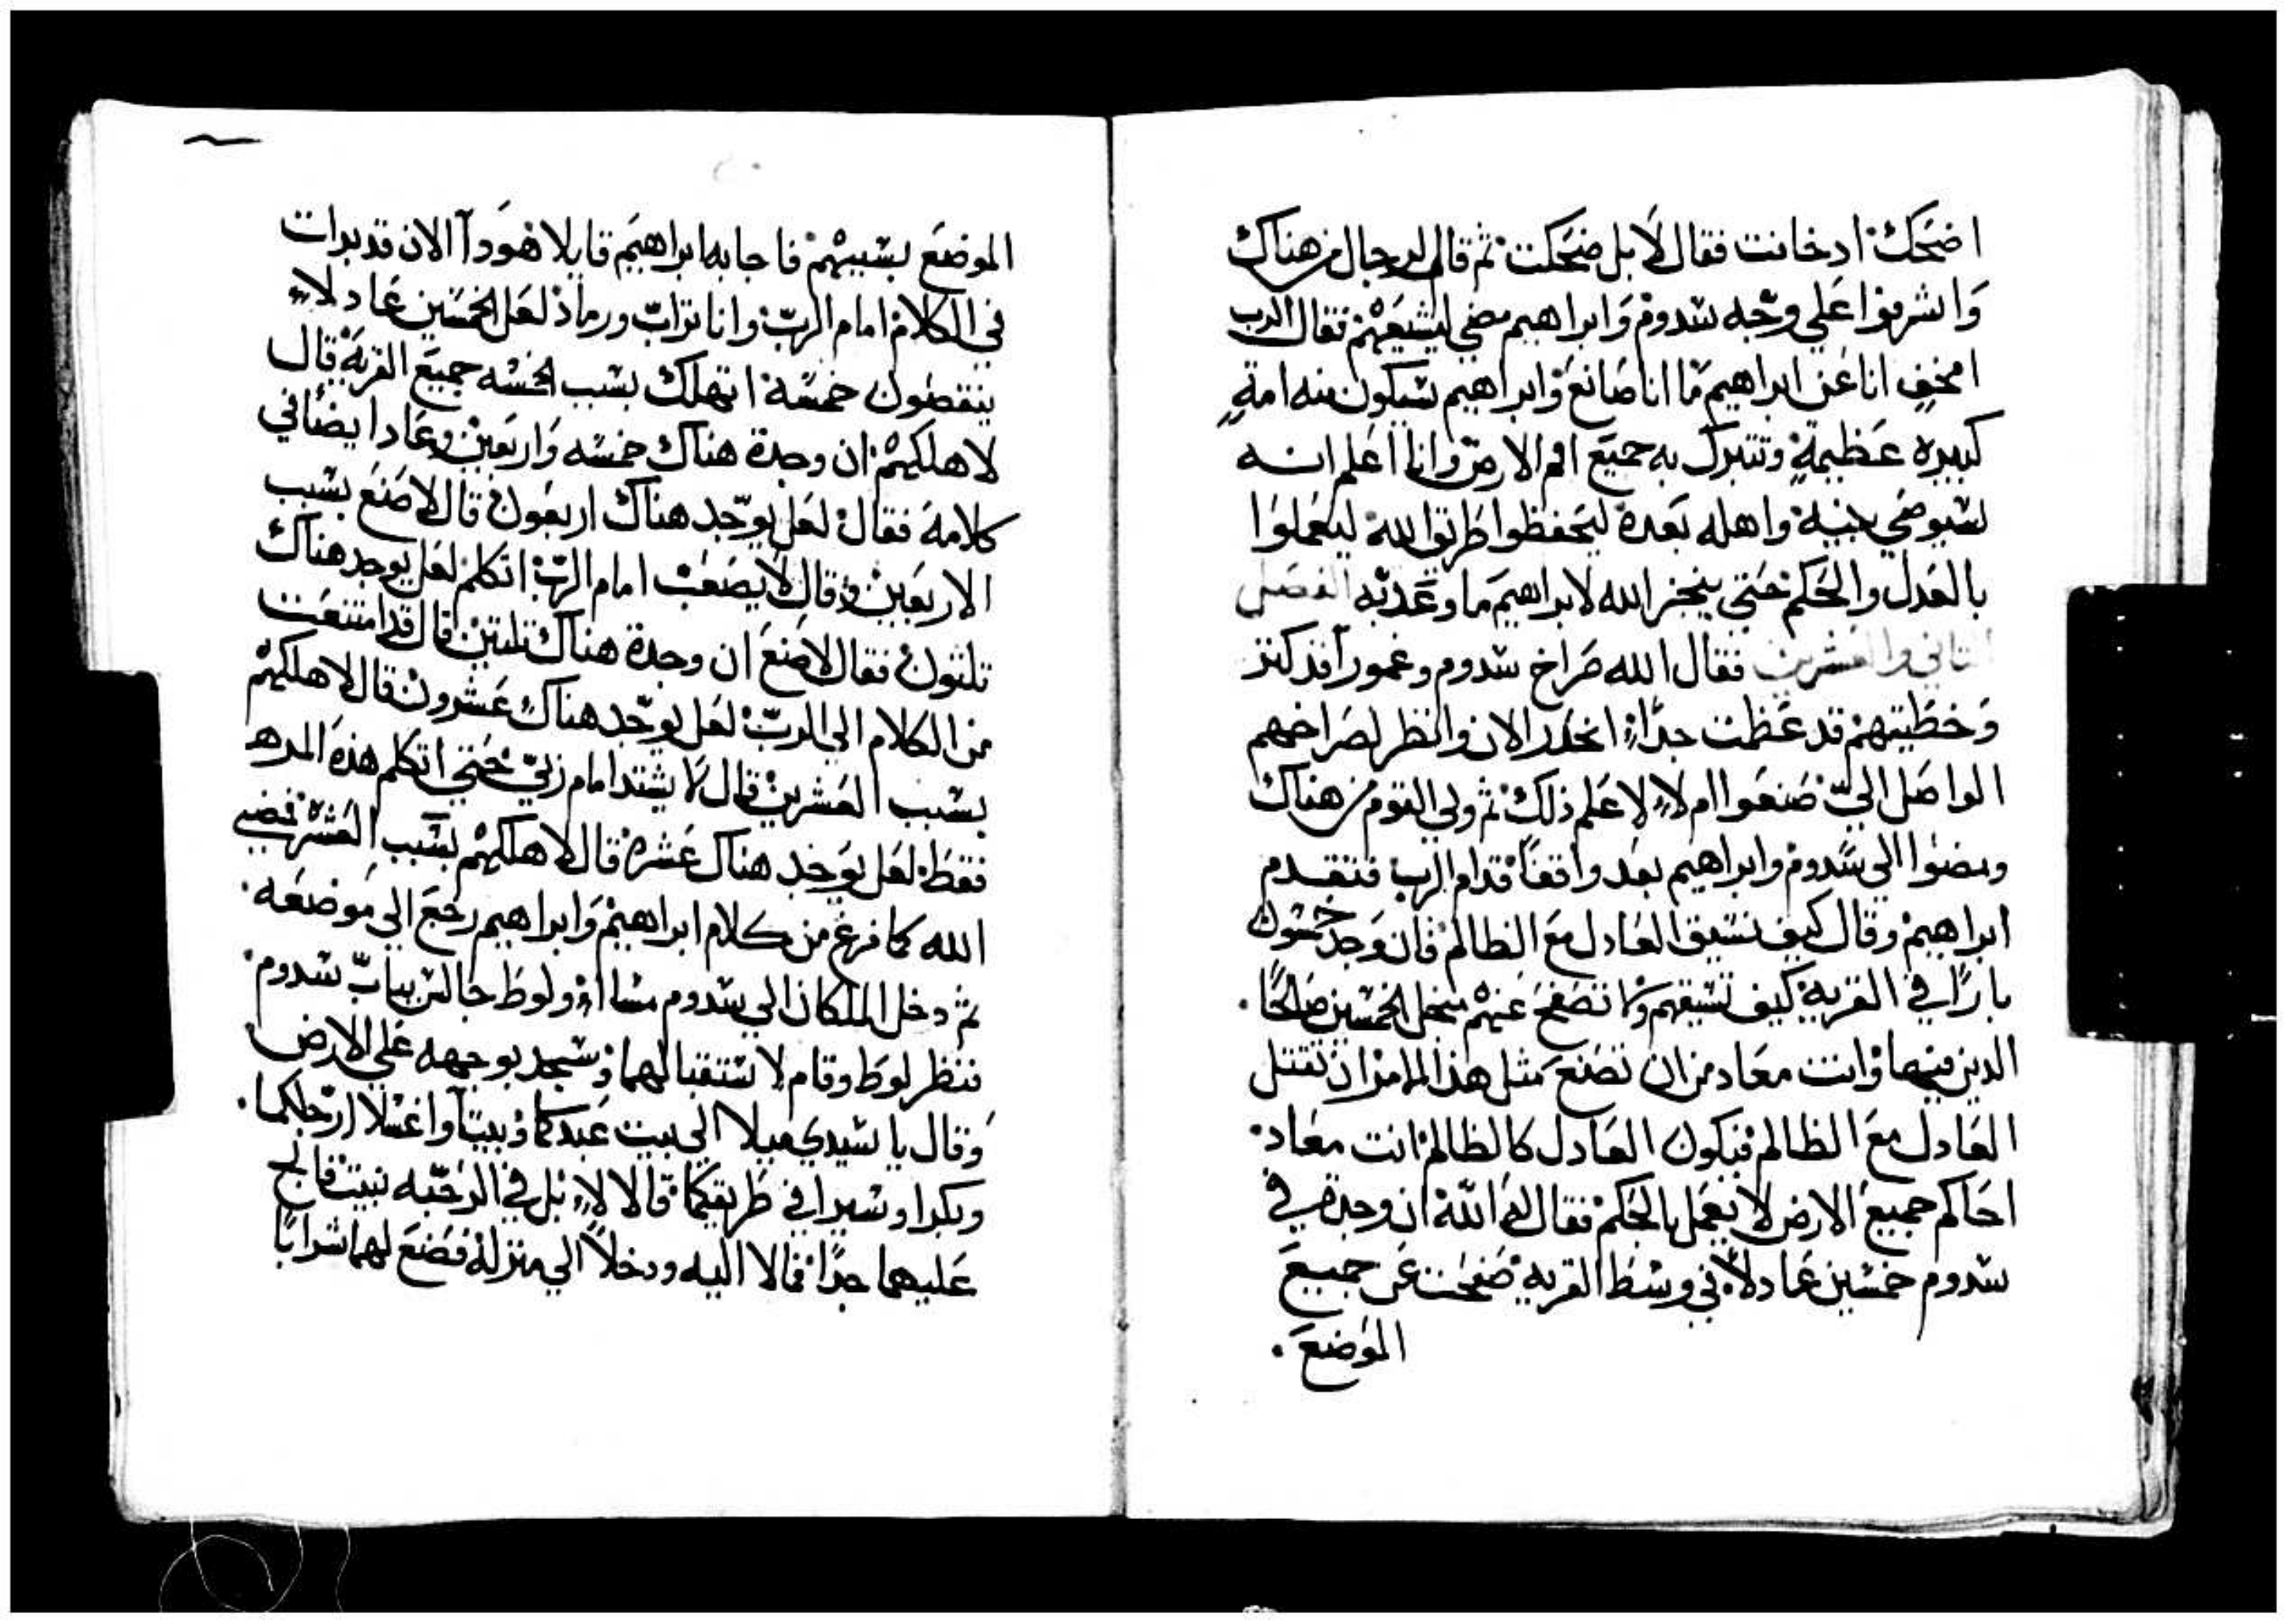 اضحك اذ خافت فقال لا بل ضحكت ثم قام الرجال من هناك
واشرفوا علي وجه سدوم وابراهيم مضي ليشيعهم فقال الرب
امخفٍ انا عن ابراهيم ما انا صانع وابراهيم سيكون منه امةٍ
كبيره عظيمةٍ وتتبرك به جميع امم الارض وانا اعلم انه
سيوصي بنيه واهله بعده ليحفظوا طرق الله ليعملوا
بالعدل والحكم حتي ينجز الله لابراهيم ما وعد به الفصل
الثاني والعشرين فقال الله صراخ سدوم وعمورا قد كثر
وخطيتهم قد عظمت جداً انحدر الان وانظر لصراخهم
الواصل اليّ صنعوا ام لا لاعلم ذلك ثم ولي القوم من هناك
ومضوا الي سدوم وابراهيم بعد واقفاً قدام الرب فتقدم
ابراهيم وقال كيف تسيق العادل مع الظالم فان وجد خمسون
باراً في القريه كيف تسيقهم وما تصفح عنهم من اجل الخمسين صالحاً
الدين فيها وانت معاد من ان تصنع مثل هذا الامر ان تقتل
العادل مع الظالم فيكون العادل كالظالم انت معاد
احاكم جميع الارض لا يعمل بالحكم فقال له الله ان وجدة في
سدوم خمسين عادلاً في وسط القريه صفحت عن جميع
الموضع
الموضع بسببهم فاجابه ابراهيم قايلا هودا الان قد بدات
في الكلام امام الربّ وانا ترابّ ورماد لعل الخمسين عادلاً
ينقصون خمسة اتهلك بسبب الخمسه جميع القرية قال
لا اهلكهم ان وجدة هناك خمسه واربعين وعاد ايضاً في
كلامه فقال لعل يوجد هناك اربعون قال لا صنع بسبب
الاربعين وقال لا يصعب امام الربّ اتكلم لعل يوجد هناك
تلتون فقال لا صنع ان وجدة هناك تلتين قال قد امتنعت
من الكلام الي الربّ لعل يوجد هناك عشرون قال لا اهلكهم
بسبب العشرين قال لا يشتد امام ربيّ حتي اتكلم هذه المره
فقط لعل يوجد هناك عشره قال لا اهلكهم بسبب العشره فمضي
الله كما فرغ من كلام ابراهيم وابراهيم رجع الي موضعه
ثم دخل الملكان الي سدوم مساا ولوط جالس بباب سدوم
فنظر لوط وقام لاستقبالهما وسجد بوجهه علي الارض
وقال يا سيدي ميلا الي بيت عبدكما وبيتا واغسلا ارجلكما
وبكرا وسيرا في طريقكما قالا لا بل في الرحبه نبيت فالح
عليهما جداً فمالا اليه ودخلا الي منزله فصنع لهما شراباً